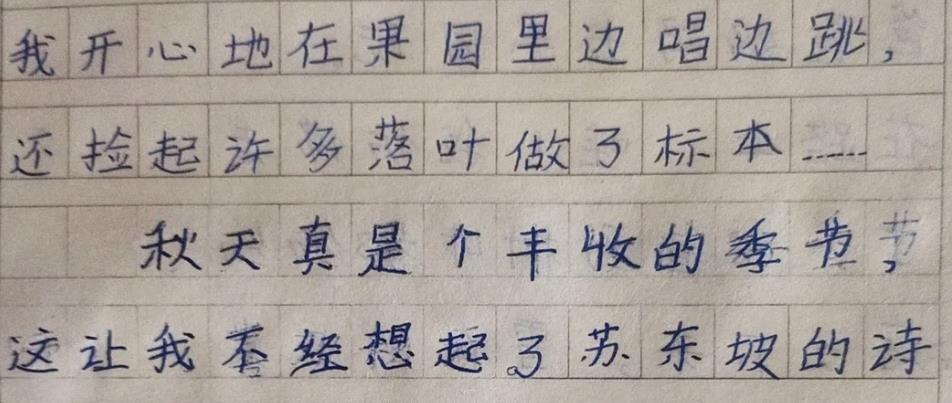 我开心地在果园里边唱边跳，
还捡起许多落叶做了标本……
秋天真是个丰收的季节，
这让我不经想起了苏东坡的诗